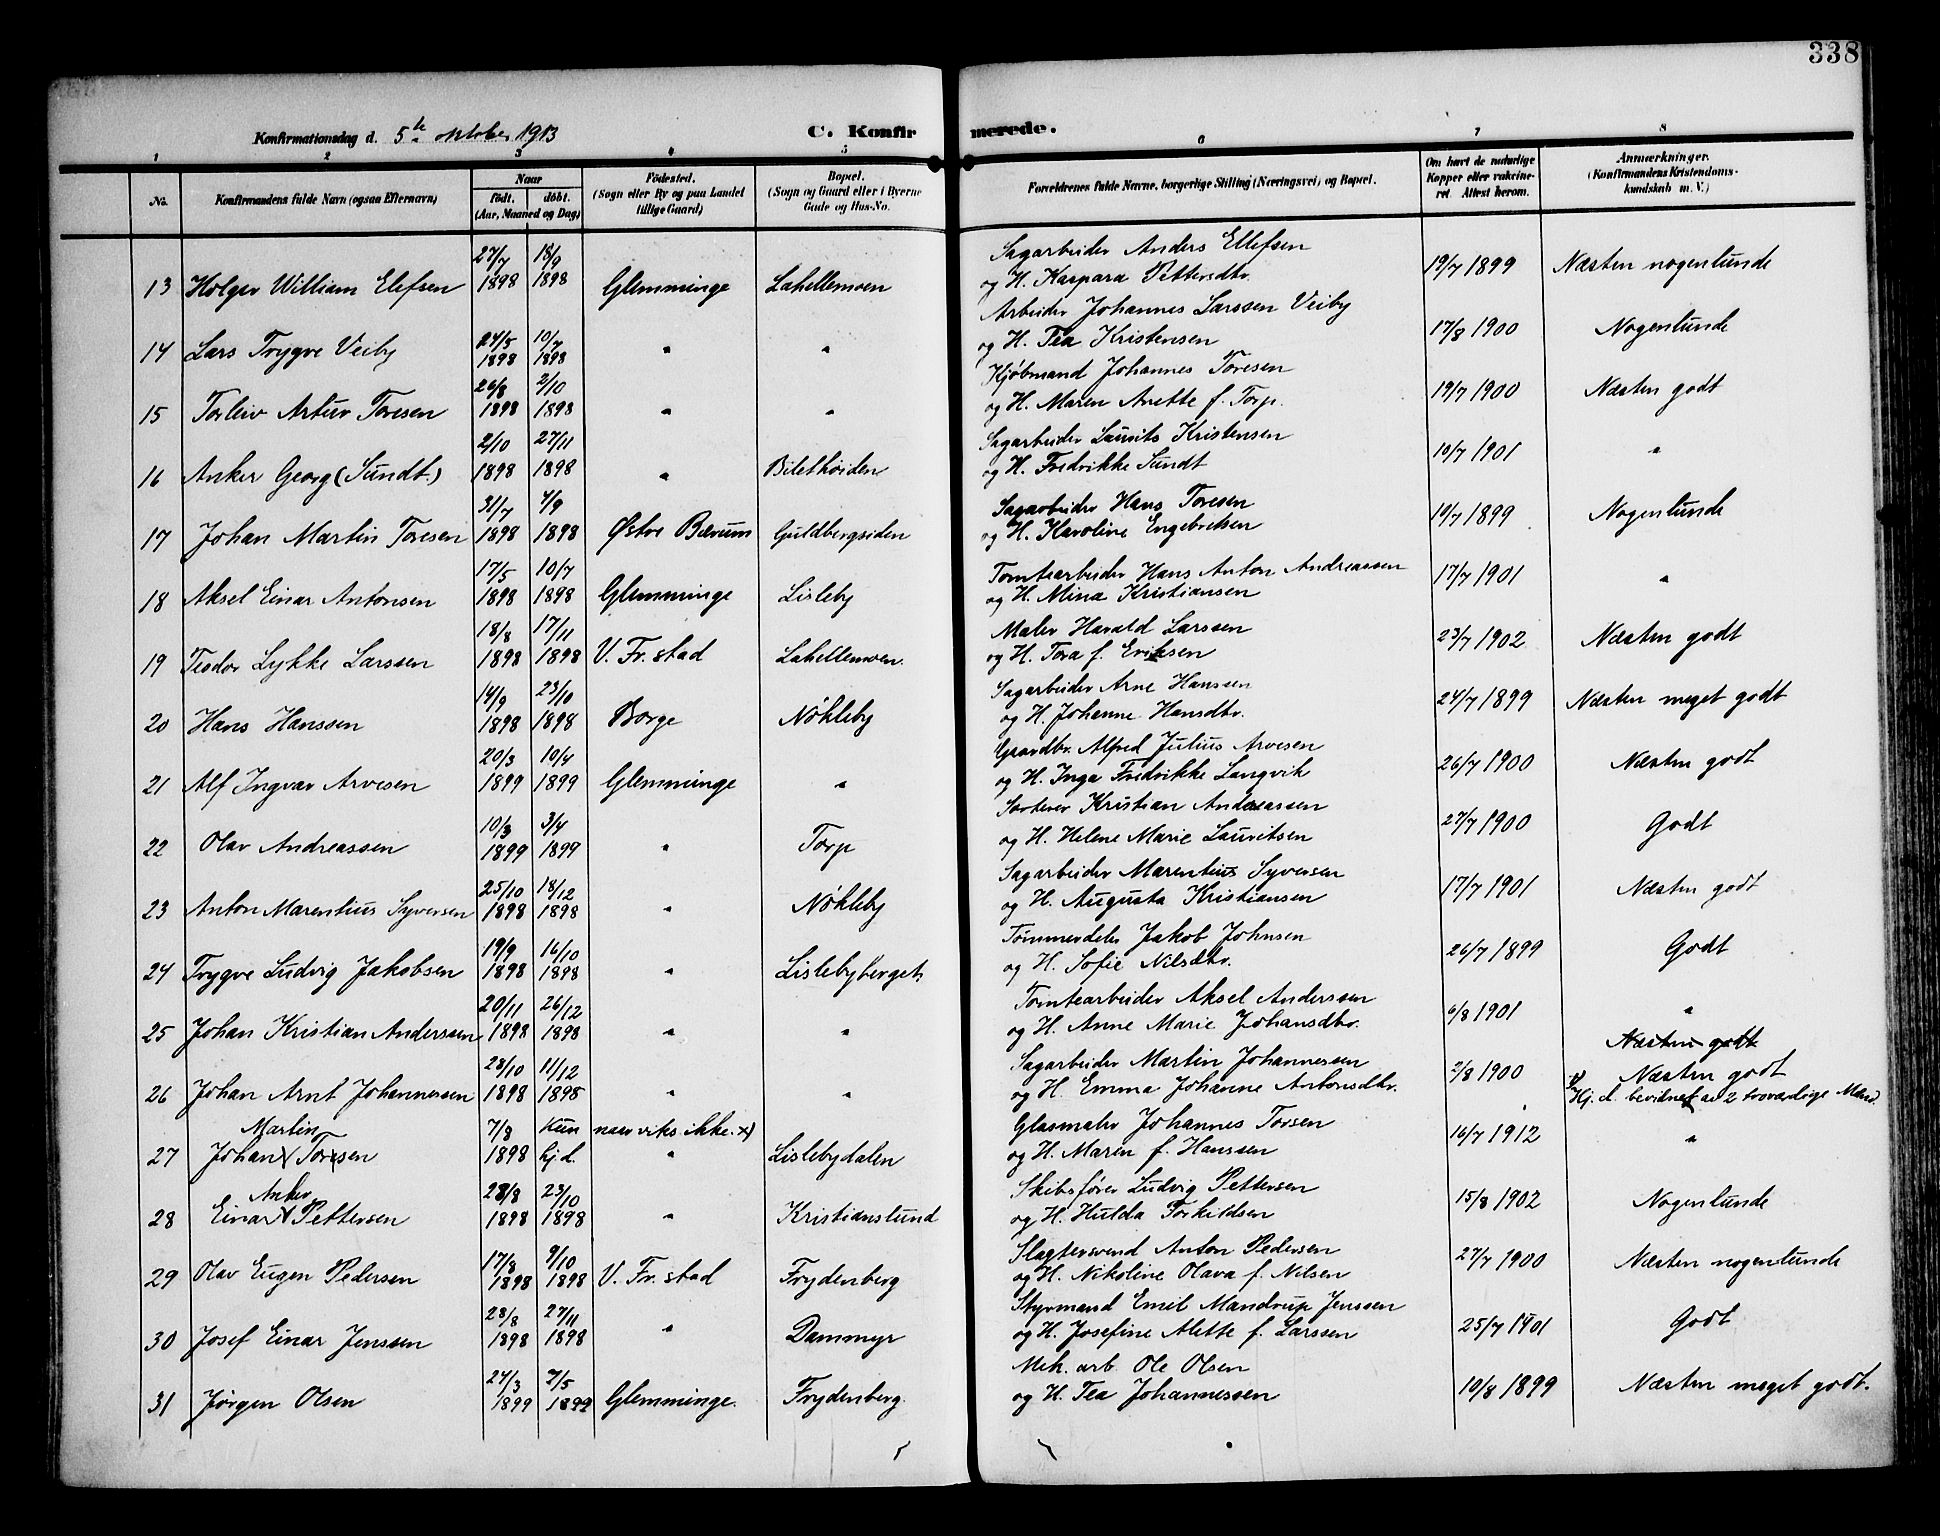 338
Konfirmationsdag d. 5te oktober 1913 C. Konfirmerede.
1 2 3 4 5 6 7 8
No. Konfirmandens fulde Navn (ogsaa Efternavn) Naar født. døbt. (Aar, Maaned og Dag) Fødested. (Sogn eller By og paa Landet tillige Gaard) Bopæl. (Sogn og Gaard eller i Byerne Gade og Hus-No. Forældrenes fulde Navne, borgerlige Stilling (Næringsvei) og Bopæl. Om havt de naturlige Kopper eller vakcineret. Attest herom. Anmærkninger. (Konfirmandens Kristendomskundskab m. V.)
13 Holger William Elefsen 27/7 1898 18/9 1898 Glemminge Lahellemoen Sagarbeider Anders Ellefsen
og H. Kaspara Pettersdtr. 19/7 1899 Næsten nogenlunde
14 Lars Trygve Veiby 24/5 1898 10/7 1898 " " Arbeider Johannes Larssen Veiby
og H. Tea Kristensen 17/8 1900 Nogenlunde
15 Torleiv Artur Toresen 26/8 1898 2/10 1898 " " Kjøbmand Johannes Toresen
og H. Maren Anette f. Torp. 19/7 1900 Næsten godt
16 Anker Georg (Sundt.) 2/10 1898 27/11 1898 " Bilethøiden Sagarbeider Laurits Kristensen
og H. Fredrikke Sundt 10/7 1901 "
17 Johan Martin Toresen 31/7 1898 4/9 1898 Østre Bærum Guldbergsiden Sagarbeider Hans Toresen
og H. Karoline Engebretsen 10/7 1899 Nogenlunde
18 Aksel Einar Antonsen 17/5 1898 10/7 1898 Glemminge Lisleby Tomtearbeider Hans Anton Andreassen
og H. Mina Kristiansen 17/7 1901 "
19 Teodor Lykke Larssen 18/8 1898 17/11 1898 V. Fr.stad Lahellemoen. Maler Harald Larssen
og H. Tora f. Eriksen 23/7 1902 Næsten godt
20 Hans Hanssen 14/9 1898 23/10 1898 Borge Nøkleby Sagarbeider Arne Hanssen
og H. Johanne Hansdtr. 24/7 1899 Næsten meget godt
21 Alf Ingvar Arvesen 20/3 1899 10/4 1899 Glemminge " Gaardbr. Alfred Julius Arvesen
og H. Inga Fredrikke Langvik 26/7 1900 Næsten godt
22 Olav Andreassen 10/3 1899 3/4 1899 " Torp Sorterer Kristian Andreassen
og H. Helene Marie Lauritsen 27/7 1900 Godt
23 Anton Marentius Syversen 25/10 1898 18/12 1898 " Nøkleby Sagarbeider Marentius Syversen
og H. Augusta Kristiansen 17/7 1901 Næsten godt
24 Trygve Ludvig Jakobsen 19/9 1898 16/10 1898 " Lislebyberget. Tømmerdeler Jakob Johnsen
og H. Sofie Nilsdtr. 26/7 1899 Godt
25 Johan Kristian Anderssen 20/11 1898 26/12 1898 " " Tomtearbeider Aksel Anderssen
og H. Anne Marie Johansdtr. 6/8 1901 "
Næsten godt
26 Johan Arnt Johannessen 28/10 1898 11/12 1898 " " Sagarbeider Martin Johannessen
og H. Emma Johanne Antonsdtr. 2/8 1900 Næsten godt
x) Hj. d. bevidnet av 2 troværdige Mænd.
27 Johan Martin Torsen 7/8 1898 Kun hj.d. næsviks ikke. x) " Lislebydalen Glasmaler Johannes Torsen
og H. Maren f. Hanssen 16/7 1912 "
28 Einar Anker Pettersen 28/8 1898 23/10 1898 " Kristianslund Skibsfører Ludvig Pettersen
og H. Hulda Torkildsen 15/8 1902 Nogenlunde
29 Olav Eugen Pedersen 17/8 1898 9/10 1898 V. Fr. stad Frydenberg Slagtersvend Anton Pedersen
og H. Nikoline Olava f. Nilsen 27/7 1900 Næsten nogenlunde
30 Josef Einar Jenssen 28/8 1898 27/11 1898 " Dammyr Styrmand Emil Mandrup Jenssen
og H. Josefine Alette f. Larssen 25/7 1901 Godt
31 Jørgen Olsen 24/3 1899 7/5 1899 Glemminge. Frydenberg. Mek. arb. Ole Olsen
og H. Tea Johannessen 10/8 1899 Næsten meget godt.